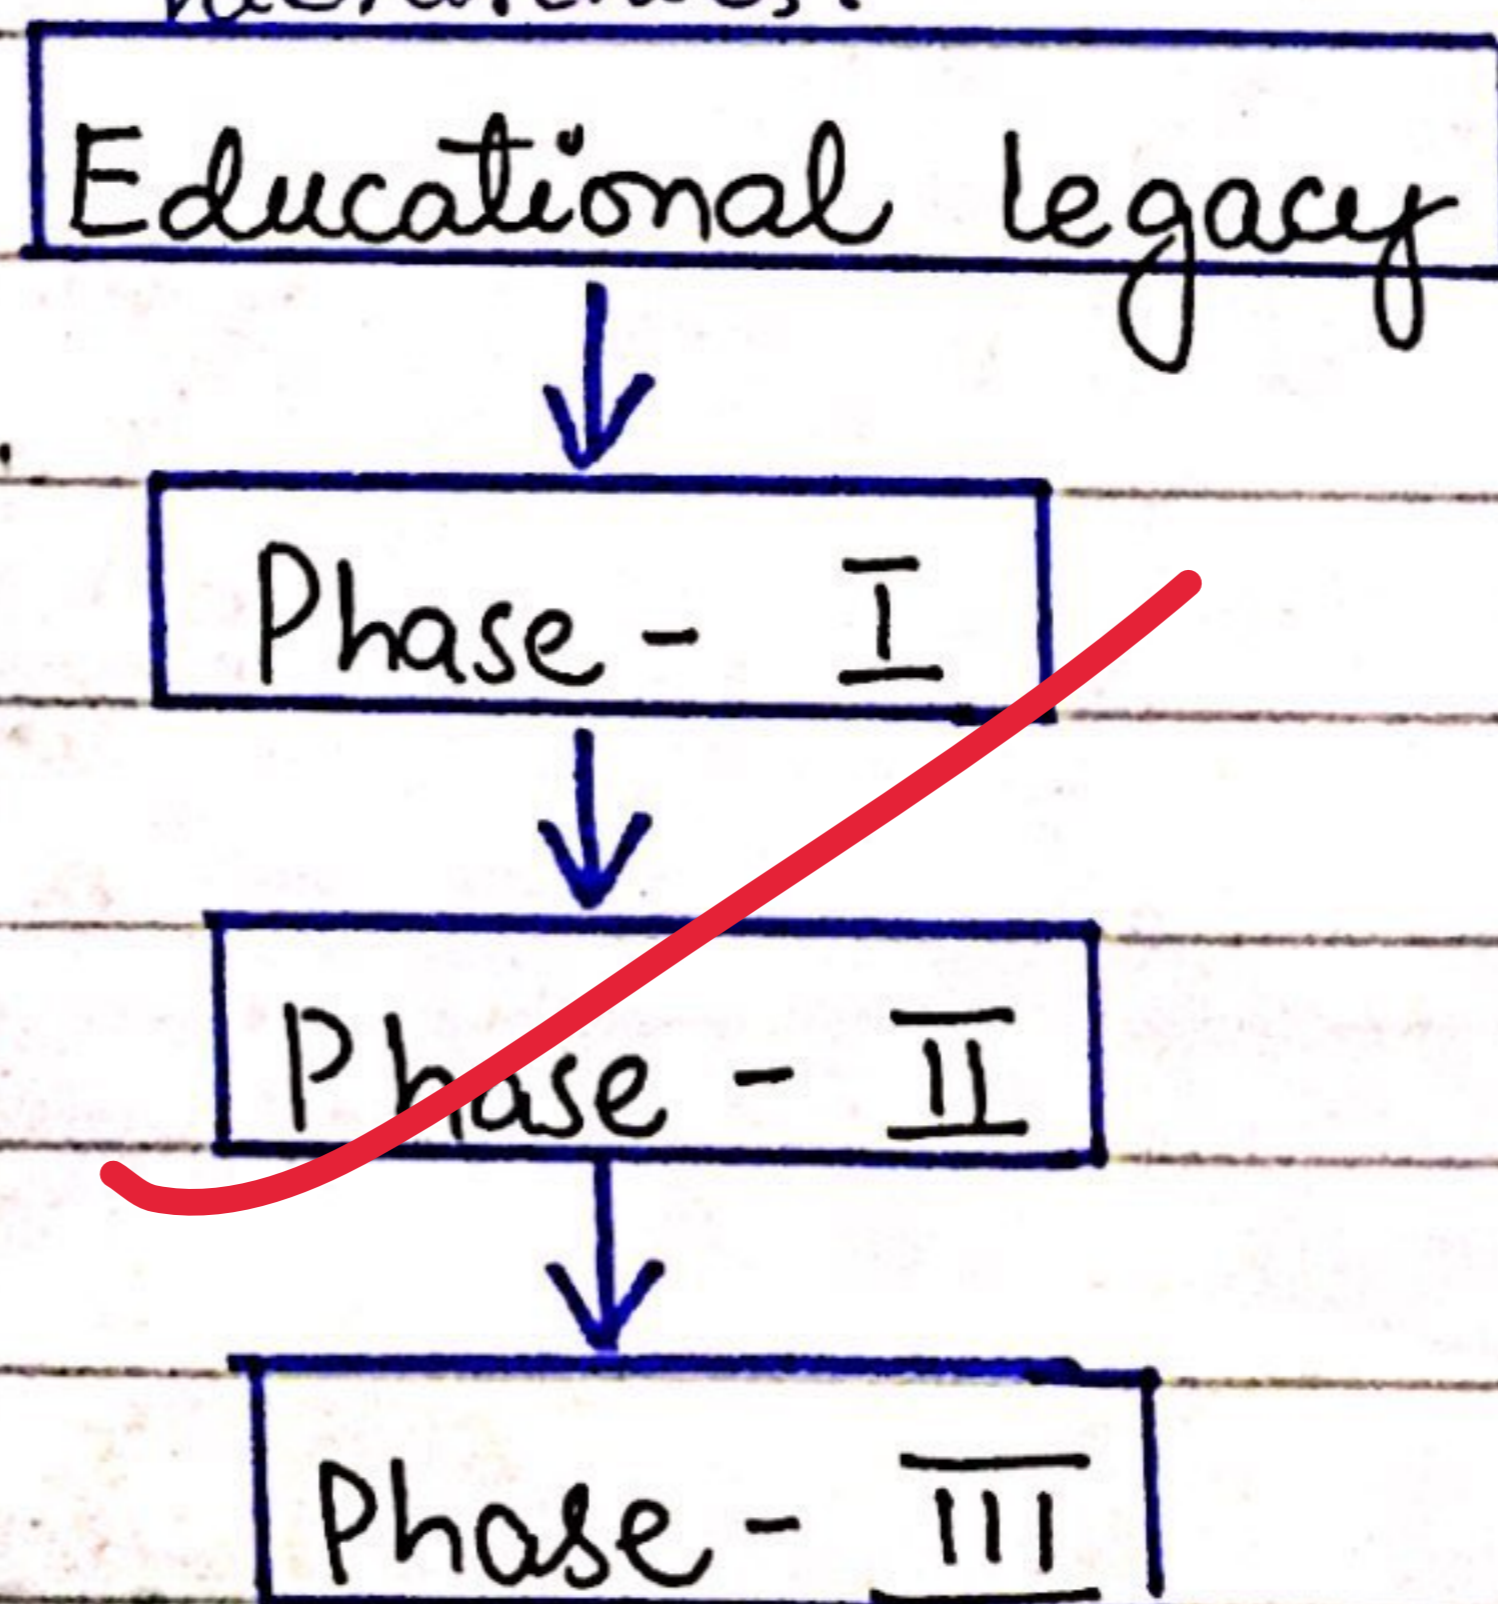 Educational legacy
Phase - I
Phase - II
Phase - III